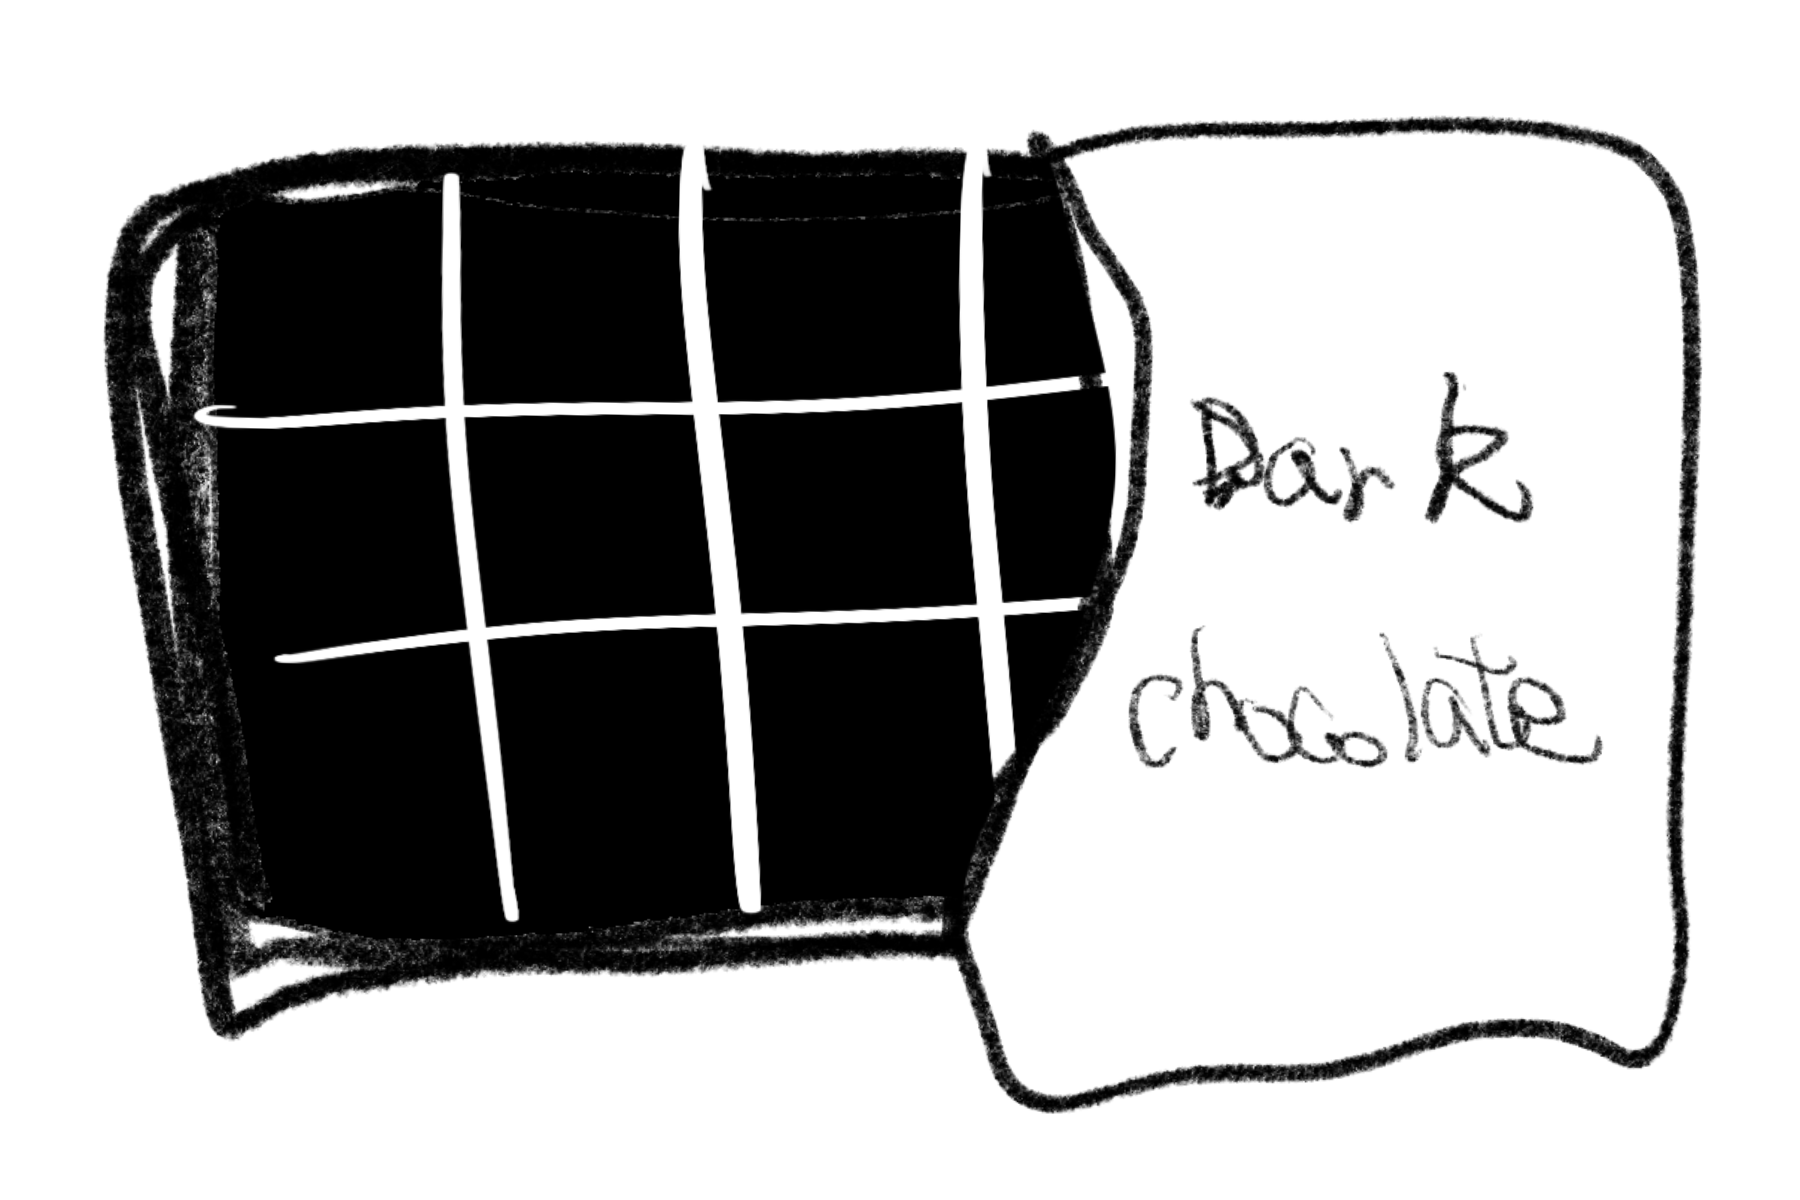 Dark
chocolate